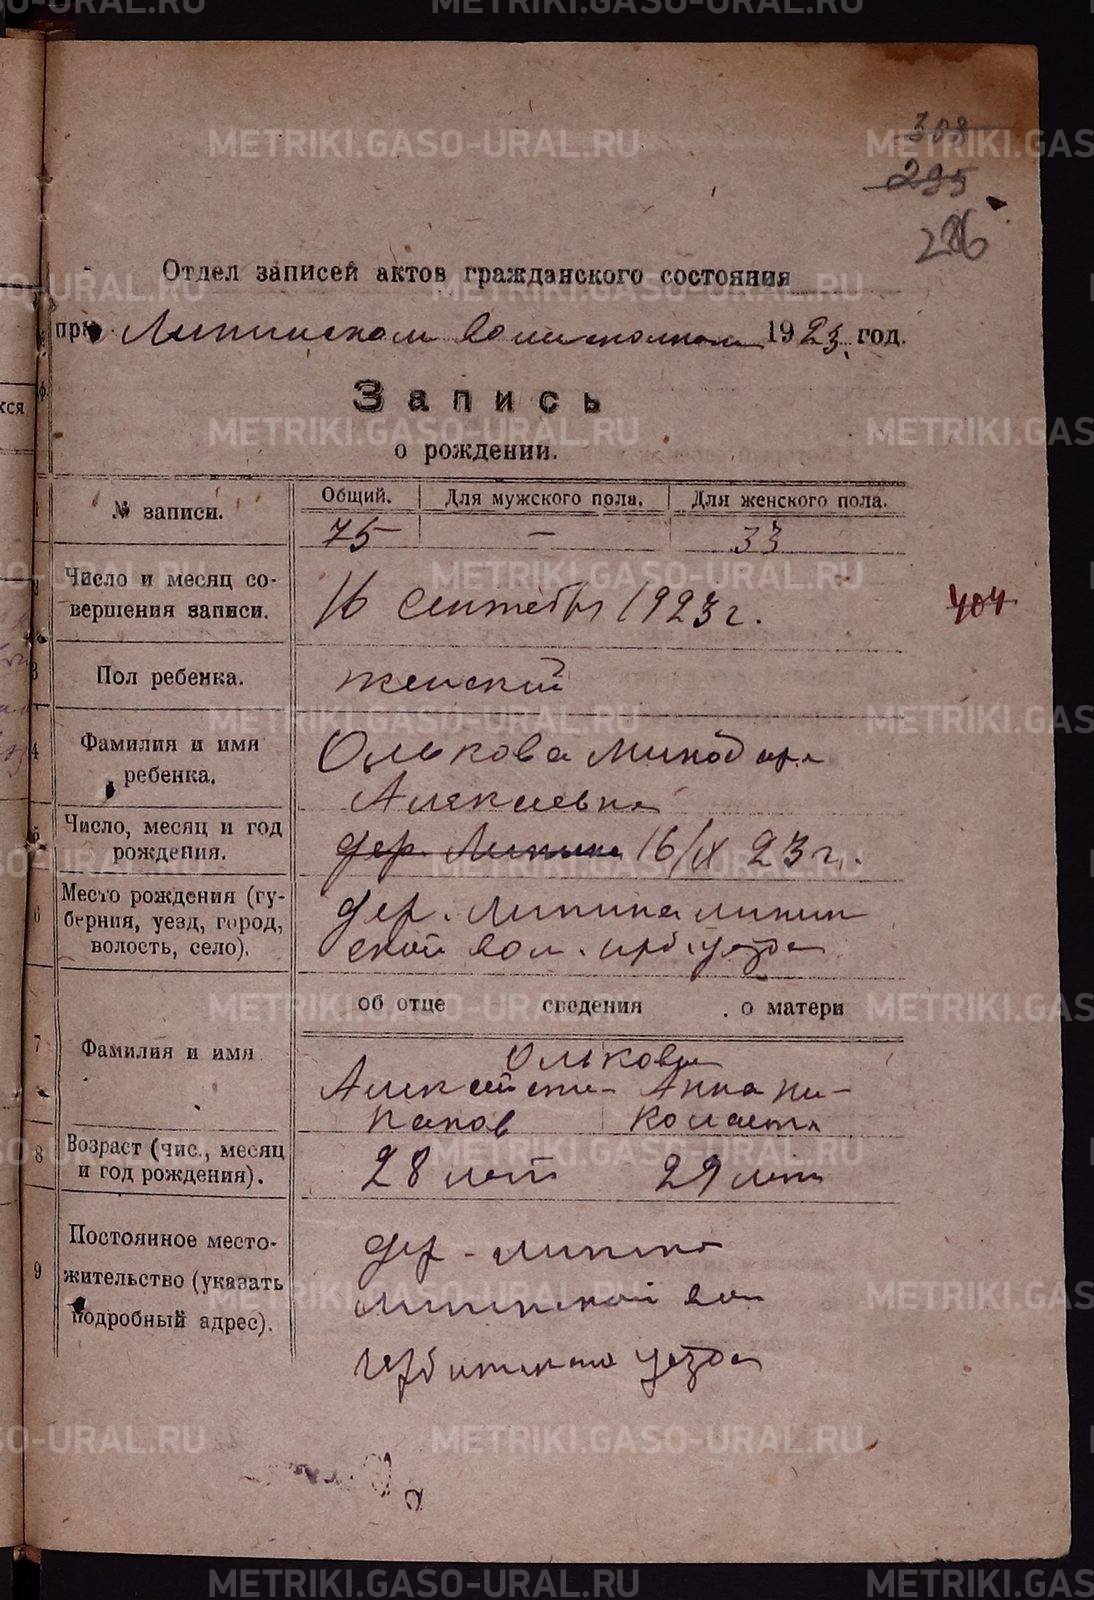 308
295
286
Отдел записей актов гражданского состояния
при Липинском волисполкоме 1923 год.
Запись
о рождении.
№ записи. Общий. Для мужского пола. Для женского пола.
75 — 33
Число и месяц совершения записи. 16 сентября 1923 г.
404
3 Пол ребенка. женский
4 Фамилия и имя ребенка. Олькова Минодора
Алексиевна
5 Число, месяц и год рождения. дер. Липина 16/IX 23 г.
6 Место рождения (губерния, уезд, город, волость, село). дер. Липина Липин
ской вол. ирб. уезда
об отце сведения о матери
7 Фамилия и имя Ольковы
Алексей сти- Анна ни-
панов колаевна
8 Возраст (чис., месяц и год рождения). 28 лет 29 лет
9 Постоянное местожительство (указать подробный адрес). дер. Липина
Липинской вол
Ирбитского уезда
METRIKI.GASO-URAL.RU